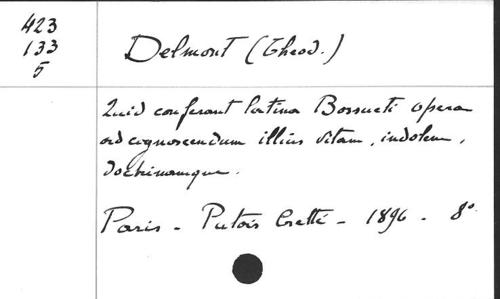 423
133
5
Delmont (Théod.)
Quid conferant latina Bossueti opera
ad cognoscendum illius vitam, indolem,
doctrinamque.
Paris - Putois Cretté - 1896 - 8º